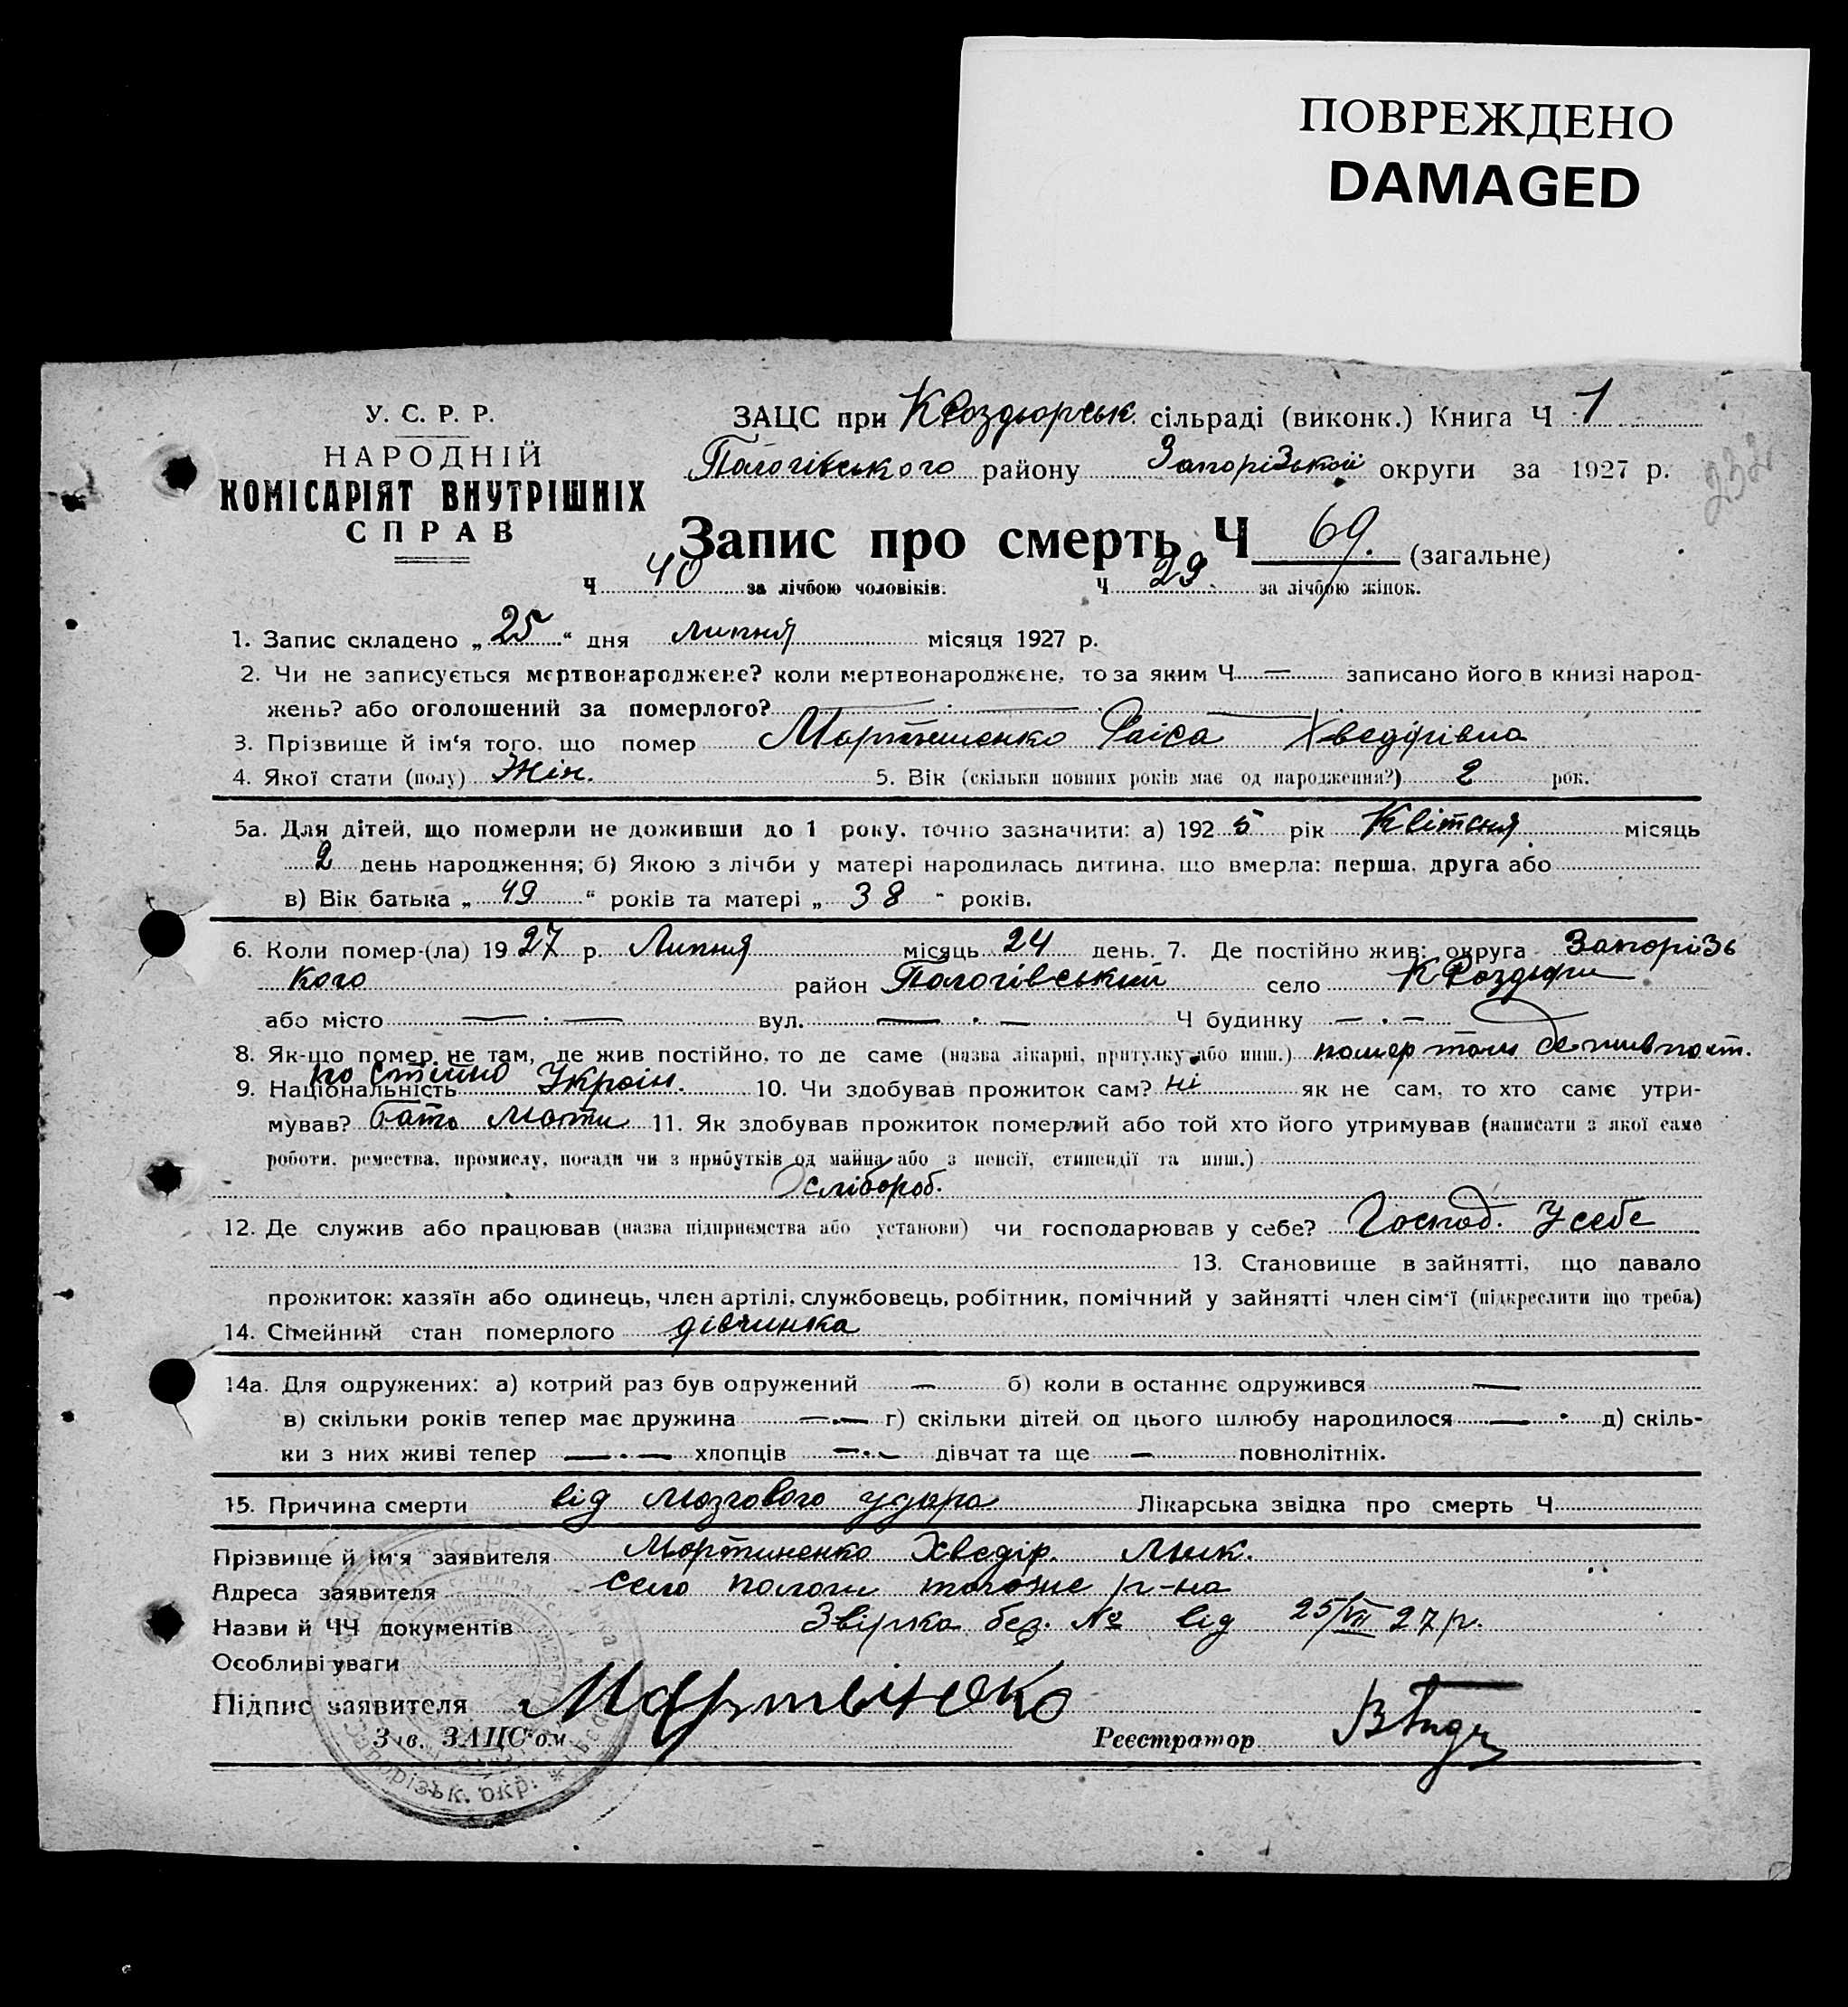 ПОВРЕЖДЕНО
DAMAGED
У. С. Р. Р.
НАРОДНІЙ
КОМІСАРІЯТ ВНУТРІШНІХ
СПРАВ
ЗАЦС при КРоздорськ. сільраді (виконк.) Книга Ч 1
Пологівського району Запорізької округи за 1927 р.
232
Запис про смерть Ч 69. (загальне)
Ч 40 за лічбою чоловіків. Ч 29 за лічбою жінок.
1. Запис складено „ 25 “ дня липня місяця 1927 р.
2. Чи не записується мертвонароджене? коли мертвонароджене, то за яким Ч — записано його в книзі народ-
жень? або оголошений за померлого? —
3. Прізвище й ім‘я того, що помер Мартиненко Раіса Хведірівна
4. Якої стати (полу) Жін. 5. Вік (скільки повних років має од народження?) 2 рок.
5а. Для дітей, що померли не доживши до 1 року, точно зазначити: а) 192 5 рік Квітня місяць
2 день народження; б) Якою з лічби у матері народилась дитина, що вмерла: перша, друга або
в) Вік батька „ 49 “ років та матері „ 38 “ років.
6. Коли помер-(ла) 19 27 р. Липня місяць 24 день. 7. Де постійно жив: округа Запорізь
кого район Пологівський село КРоздори
або місто — · — вул. — · — Ч будинку — · —
8. Як-що помер не там, де жив постійно, то де саме (назва лікарні, притулку або инш.) помер там де жив пост.
постійно
9. Національність Україн. 10. Чи здобував прожиток сам? ні як не сам, то хто саме утри-
мував? Бато Мати 11. Як здобував прожиток померлий або той хто його утримував (написати з якої саме
роботи, ремества, промислу, посади чи з прибутків од майна або з пенсії, стипендії та инш.)
Хлібороб.
12. Де служив або працював (назва підприємства або установи) чи господарював у себе? Господ. У себе
13. Становище в зайнятті, що давало
прожиток: хазяїн або одинець, член артілі, службовець, робітник, помічний у зайнятті член сім‘ї (підкреслити що треба)
14. Сімейний стан померлого дівчинка
14а. Для одружених: а) котрий раз був одружений — б) коли в останнє одружився —
в) скільки років тепер має дружина — · — г) скільки дітей од цього шлюбу народилося — · д) скіль-
ки з них живі тепер — · — хлопців — · — дівчат та ще — повнолітніх.
15. Причина смерти від мозгового удара Лікарська звідка про смерть Ч
Прізвище й ім‘я заявителя Мартиненко Хведір. Мик.
Адреса заявителя село пологи того же р-на
Назви й ЧЧ документів Звірка без. № від 25/VII 27 р.
Особливі уваги
Підпис заявителя Мартыненко
Зав. ЗАЦС‘ом Реєстратор
Запорізьк. окр.